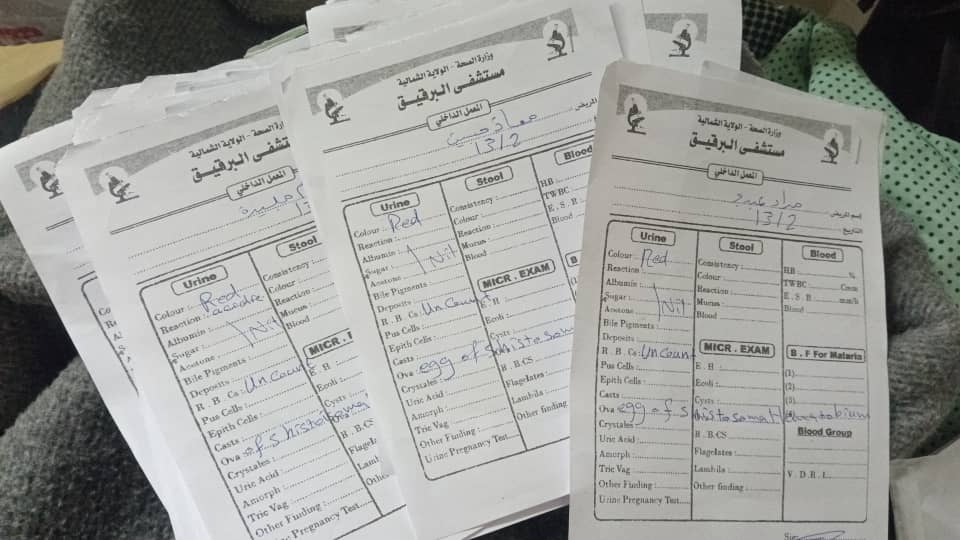 وزارة الصحة - الولاية الشمالية
مستشفى البرقيق
المعمل الداخلي
إسم المريض
مراد عبده
التاريخ
13/2
Urine
Colour : Red
Reaction :
Albumin :
Sugar :
Acetone : Nil
Bile Pigments :
Deposits :
R . B . Cs : Uncount
Pus Cells :
Epith Cells :
Casts :
Ova egg of shistosoma Heamatobium
Crystales :
Uric Acid :
Amorph :
Tric Vag :
Other Finding :
Urine Pregnancy Test
Stool
Consistency :
Colour :
Reaction :
Mucus :
Blood :
MICR . EXAM
E . H :
Ecoli :
Cysts :
R . B.CS
Flagelates :
Lambila :
Other finding :
Blood
HB : %
TWBC : Cmm
E . S . B : mm/h
Blood :
B . F For Malaria
(1)
(2)
(3)
Blood Group
V . D . R . L
وزارة الصحة - الولاية الشمالية
مستشفى البرقيق
المعمل الداخلي
المريض
معاذ حسين
13/2
Urine
Colour : Red
Reaction :
Albumin :
Sugar :
Acetone : Nil
Bile Pigments :
Deposits :
R . B . Cs : Uncount
Pus Cells :
Epith Cells :
Casts :
Ova : egg of shistosoma
Crystales :
Uric Acid :
Amorph :
Tric Vag :
Other Finding :
Urine Pregnancy Test
Stool
Consistency :
Colour :
Reaction :
Mucus :
Blood :
MICR . EXAM
E . H
Ecoli :
Cysts :
R . B.CS
Flagelates :
Lambila :
Other finding
Blood
HB :
TWBC :
E . S . B :
Blood
وزارة الصحة - الولاية الشمالية
مستشفى البرقيق
المعمل الداخلي
Urine
Colour : Red
Reaction : acidre
Albumin :
Sugar : Nil
Acetone :
Bile Pigments :
Deposits :
R . B . Cs : Uncount
Pus Cells :
Epith Cells :
Casts :
Ova of shistosoma
Crystales :
Uric Acid :
Amorph :
Tric Vag :
Other Finding :
Urine Pregnancy Test
Stool
Consistency :
Colour :
Reaction :
Mucus :
Blood
MICR .
E . H
Ecoli :
Cysts
R . B.CS
Flagelates
Lamb
Other